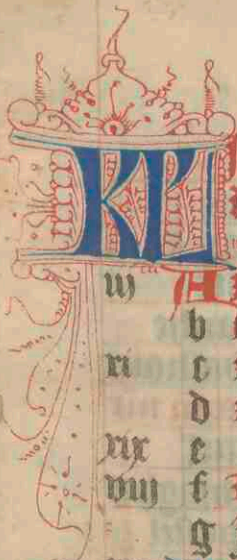 KL
iij A
b
xi c
d
xix e
viij f
g